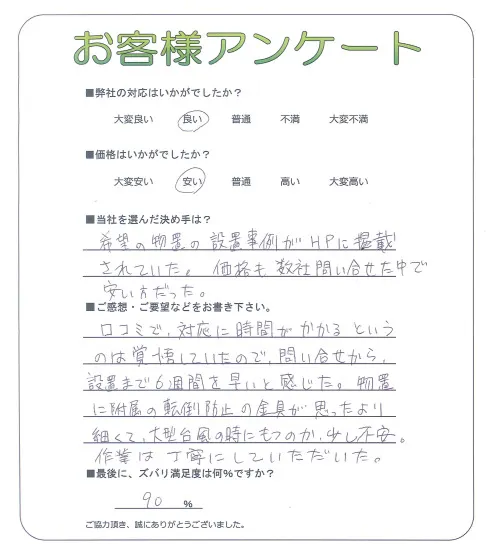 お客様アンケート
■弊社の対応はいかがでしたか？
大変良い 良い 普通 不満 大変不満
■価格はいかがでしたか？
大変安い 安い 普通 高い 大変高い
■当社を選んだ決め手は？
希望の物置の設置事例がHPに掲載
されていた。価格も数社問い合せた中で
安い方だった。
■ご感想・ご要望などをお書き下さい。
口コミで、対応に時間がかかるという
のは覚悟していたので、問い合せから、
設置まで6週間を早いと感じた。物置
に附属の転倒防止の金具が思ったより
細くて、大型台風の時にもつのか、少し不安。
作業は丁寧にしていただいた。
■最後に、ズバリ満足度は何%ですか？
90 %
ご協力頂き、誠にありがとうございました。